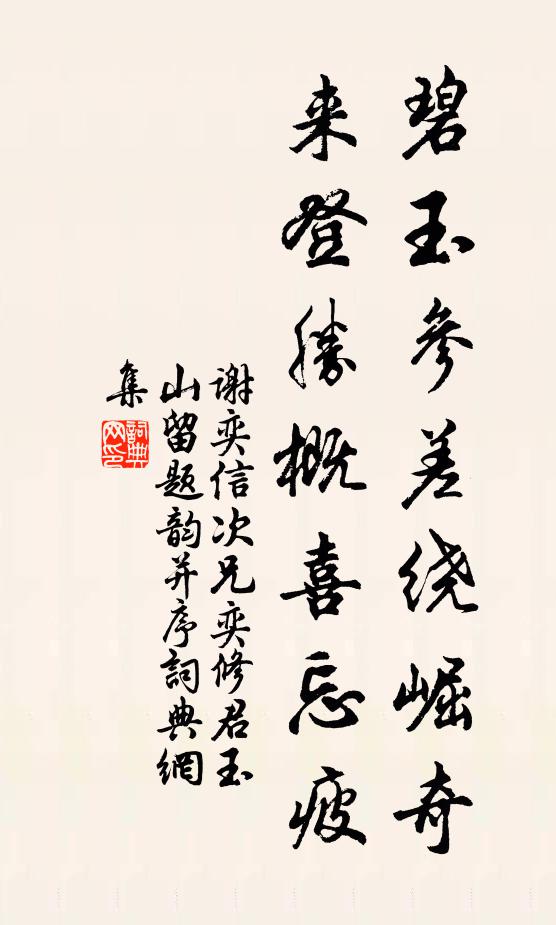 碧玉参差绕崛奇
来登勝概喜忘疲
谢奕信次兄奕修君玉
山留题韵并序詞典網
集
詞典
网印